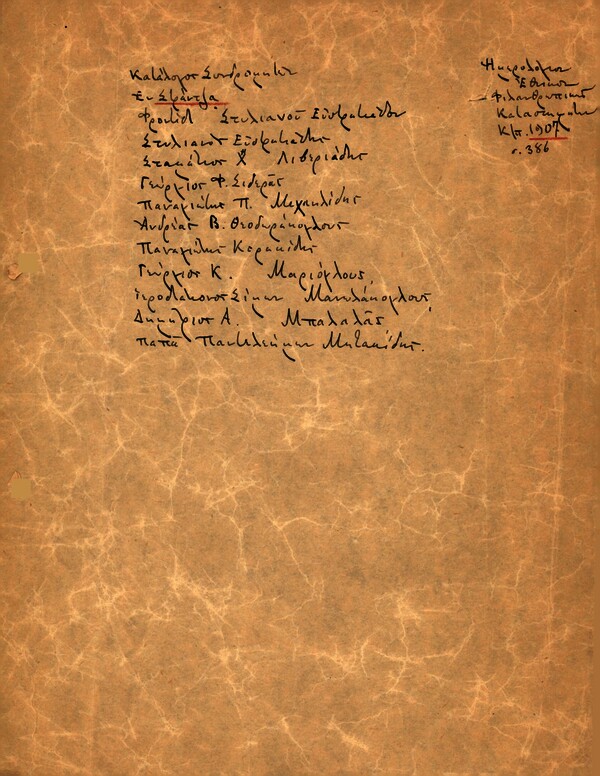 Κατάλογος Συνδρομητών
Εν Στράντζα
Φροντίδι Στυλιανού Ευστρατιάδου
Στυλιανός Ευστρατιάδης
Σταμάτιος Χ Λιβεριάδης
Γεώργιος Φ. Σιδεράς
Παναγιώτης Π. Μιχαηλίδης
Ανδρέας Β. Θεοδωράκογλους
Παναγιώτης Κερακίδης
Γεώργιος Κ. Μαριόγλους,
Ιεροδιάκονος Σίμων Μανωλάκογλους,
Δημήτριος Α. Μπαλαλάς,
παπά Παντελεήμων Μητακίδης.
Ημερολόγιον
Εθνικών
Φιλανθρωπικών
Καταστημάτων
Κ/π. 1907
σ. 386